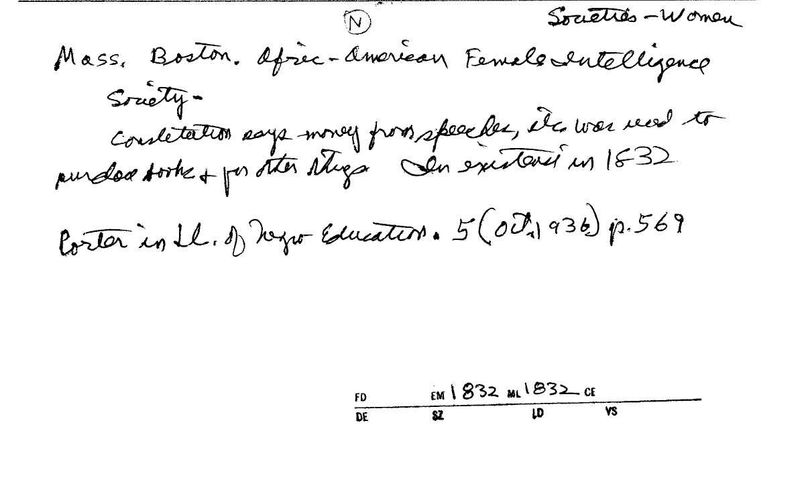 N
Societies - Women
Mass. Boston. Afric-American Female Intelligence
Society -
Constitution says money from speeches, etc. was used to
purchase books + for other things. In existence in 1832
Porter in Jl. of Negro Education. 5 (Oct. 1936) p. 569
FD EM 1832 ML 1832 CE
DE SZ LD VS